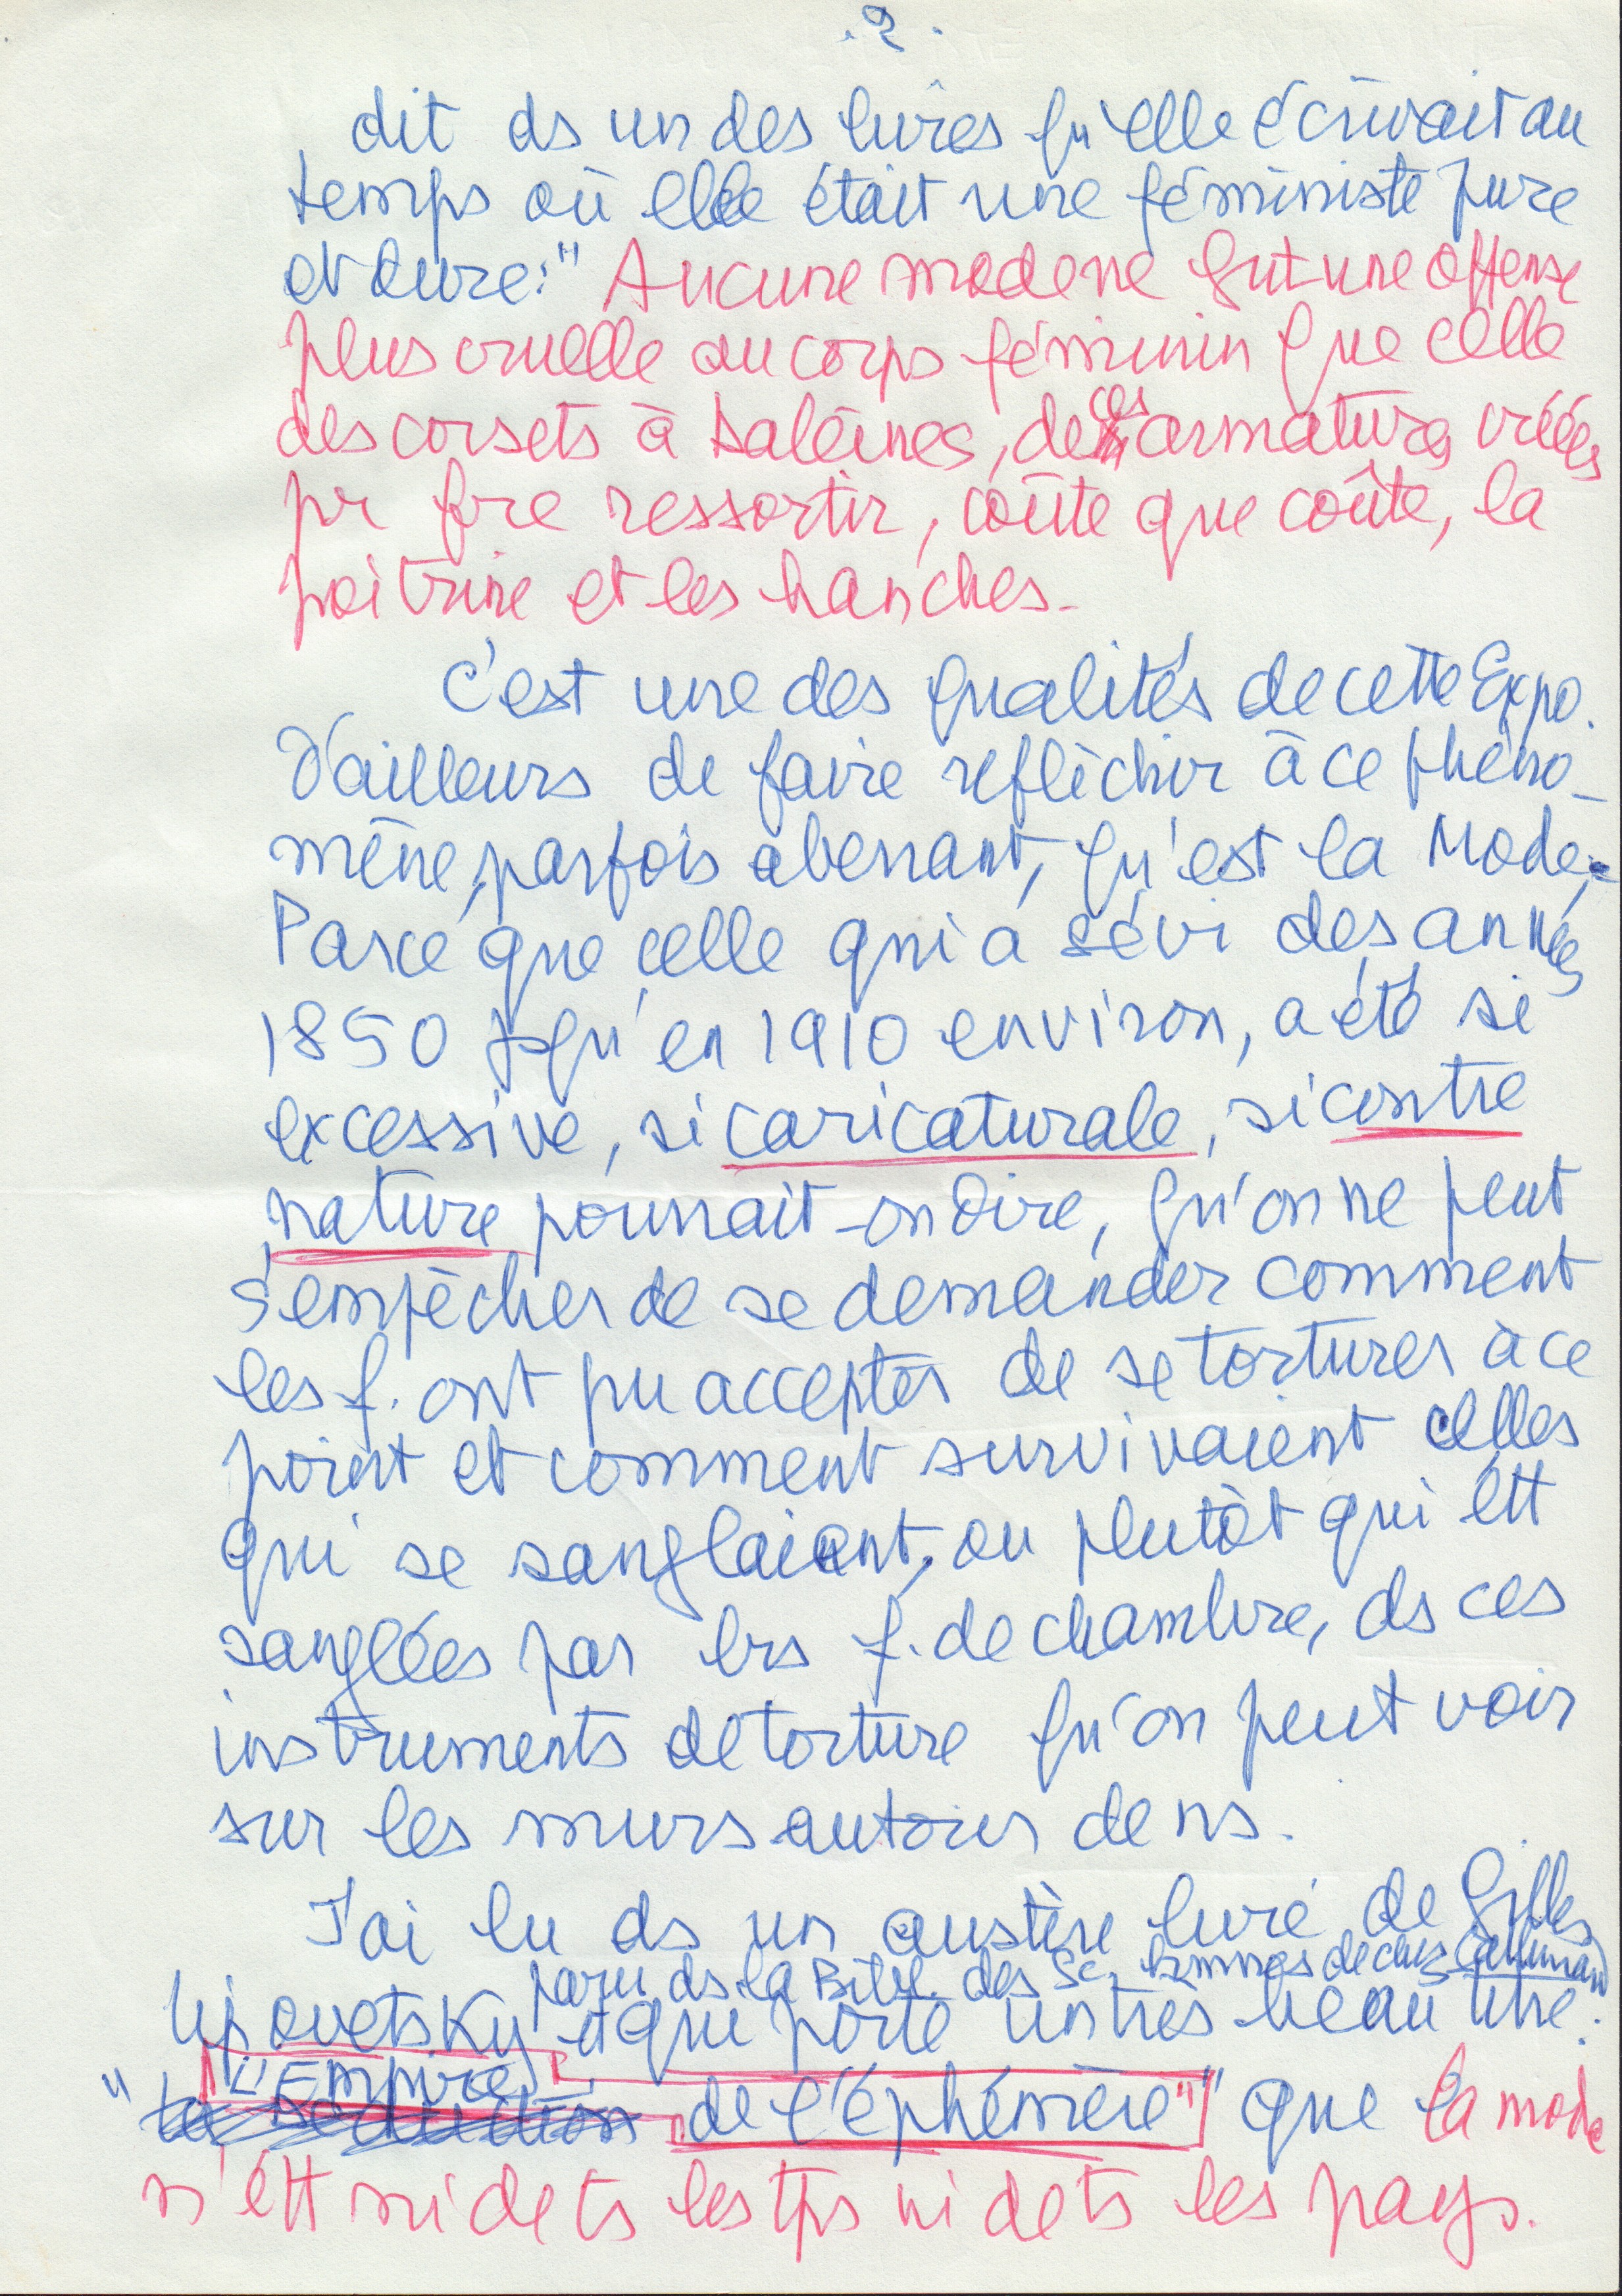 . 2 .
dit ds un des livres qu'elle écrivait au
temps où elle était une féministe pure
et dure: " Aucune mode ne fut une offense
plus cruelle au corps féminin que celle
des corsets à baleines, de ces armatures créées
pr fre ressortir, coûte que coûte, la
poitrine et les hanches.
C'est une des qualités de cette Expo.
d'ailleurs de faire réfléchir à ce phéno-
mène, parfois aberrant, qu'est la Mode.
Parce que celle qui a sévi des années
1850 jsqu'en 1910 environ, a été si
excessive, si caricaturale, si contre
nature pourrait-on dire, qu'on ne peut
s'empêcher de se demander comment
les f. ont pu accepter de se torturer à ce
point et comment survivaient celles
qui se sanglaient, ou plutôt qui étt
sanglées par lrs f. de chambre, ds ces
instruments de torture qu'on peut voir
sur les murs autour de ns.
J'ai lu ds un austère livre de Gilles
paru ds la Bibl. des Sc. humnes de chez Gallimard
Lipovetsky et qui porte un très beau titre:
L'Empire
" la séduction de l'éphémère" que la mode
n'étt ni de ts les tps ni de ts les pays.